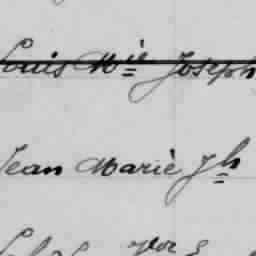 Louis Mie Joseph
Jean Marie Jh